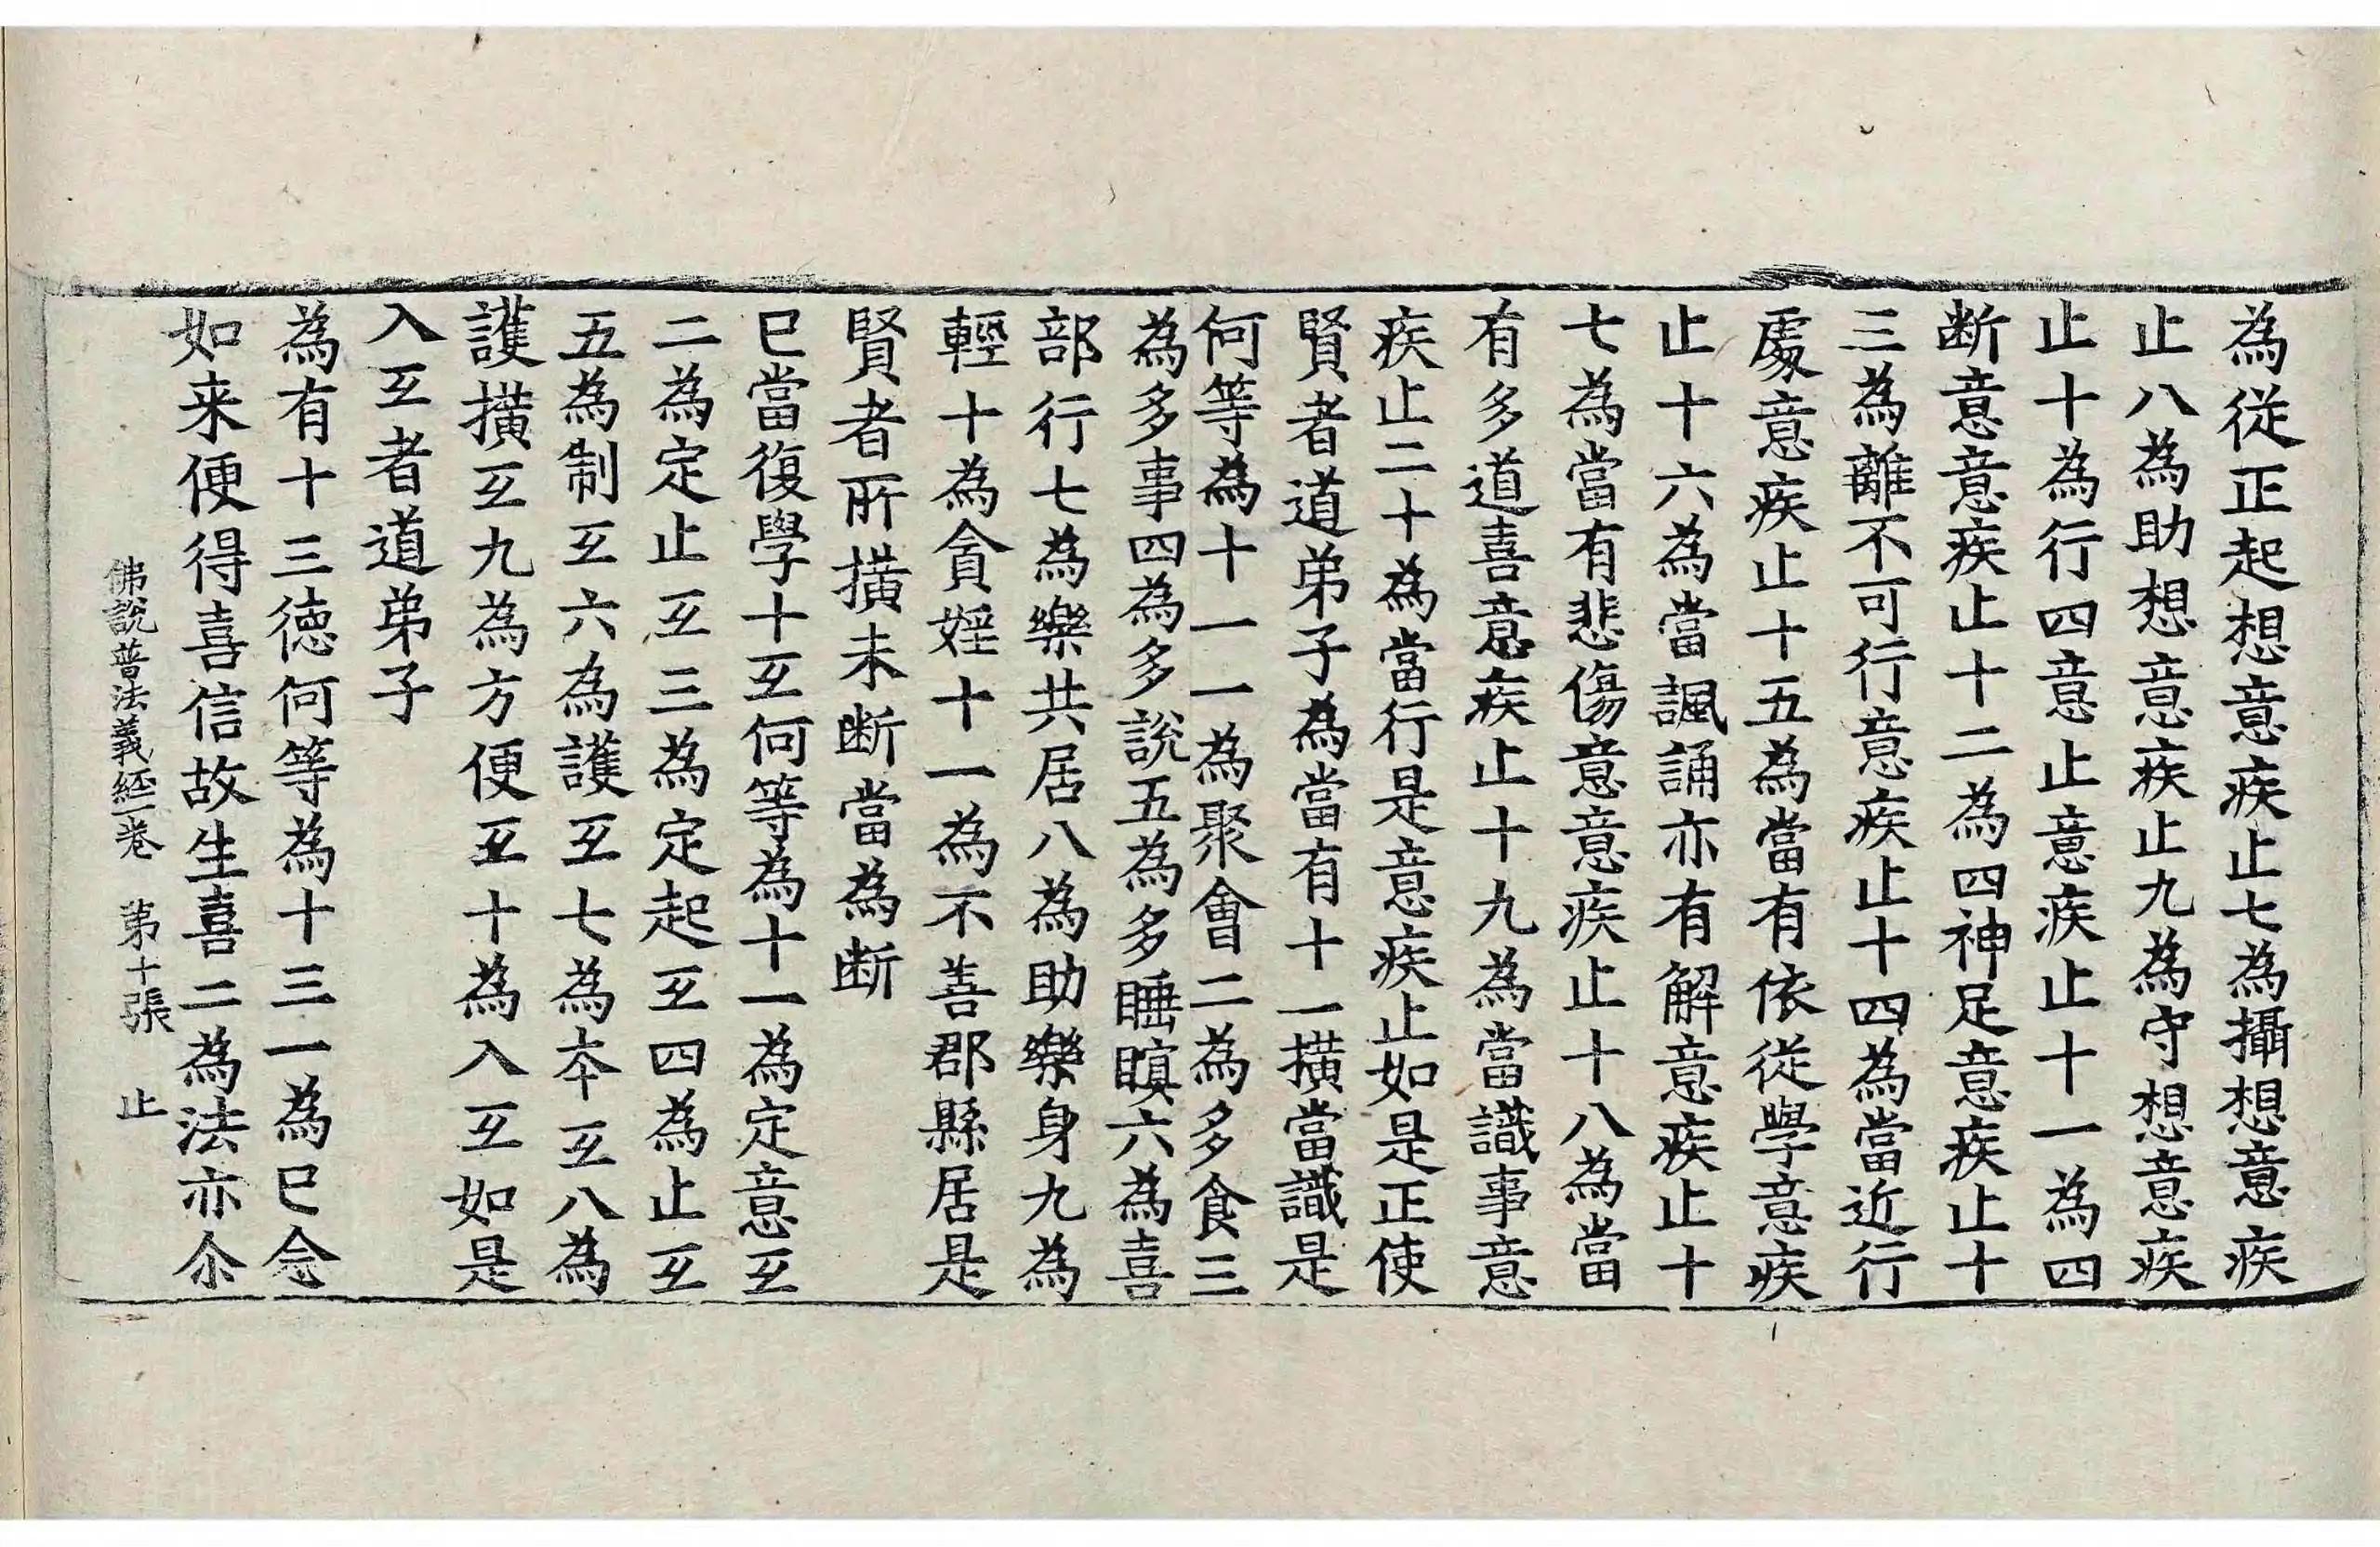 為從正起想意疾止七為攝想意疾
止八為助想意疾止九為守想意疾
止十為行四意止意疾止十一為四
断意意疾止十二為四神足意疾止十
三為離不可行意疾止十四為當近行
處意疾止十五為當有依從學意疾
止十六為當諷誦亦有解意疾止十
七為當有悲傷意意疾止十八為當
有多道喜意疾止十九為當識事意
疾止二十為當行是意疾止如是正使
賢者道弟子為當有十一撗當識是
何等為十一一為聚會二為多食三
為多事四為多說五為多睡瞋六為喜
部行七為樂共居八為助樂身九為
輕十為貪婬十一為不善郡縣居是
賢者所撗未断當為断
已當復學十㸦何等為十一為定意㸦
二為定止㸦三為定起㸦四為止㸦
五為制㸦六為護㸦七為夲㸦八為
護撗㸦九為方便㸦十為入㸦如是
入㸦者道弟子
為有十三徳何等為十三一為已念
如来便得喜信故生喜二為法亦尒
佛說普法義經一卷 第十張 止